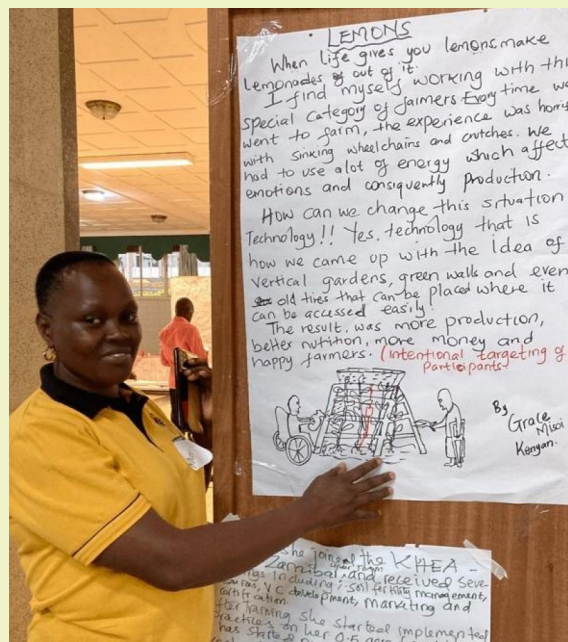 LEMONS
When life gives you lemons, make
Lemonades of out of it.
I find myself working with this
special category of farmers Every time we
went to farm, the experience was
with sinking wheelchairs and crutches. We
had to use alot of energy which affect
emotions and consiquently Production.
How can we change this situation
Technology!! Yes. technology that is
how we came up with the Idea of
vertical gardens, green walls and even
old tires that can be placed where it
can be accessed easily.
The result, was more production,
better nutrition, more money and
happy farmers. (Intentional targeting of
Participants)
By
Grace
Misoi
Kenyan.
she joined the KHEA -
Zanzibar and received seve
ngs including; soil fertility management,
VC development, marketing and
certification
fter training she started implemented
practices on her 0.5
has started